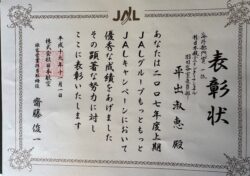 JAL
表彰状
平出淑恵 殿
あなたは二〇〇七年度上期
JALグループもっともっと
JALキャンペーンにおいて
優秀な成績をあげました
その顕著な努力に対し
ここに表彰いたします
平成十九年十一月一日
株式会社日本航空
齋藤俊一